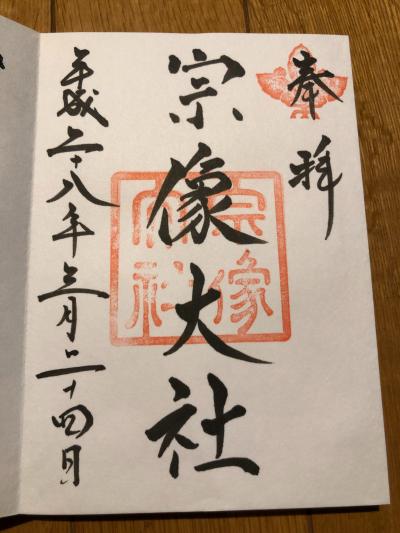 奉拝
宗像大社
宗像神社
平成二十八年三月二十四日